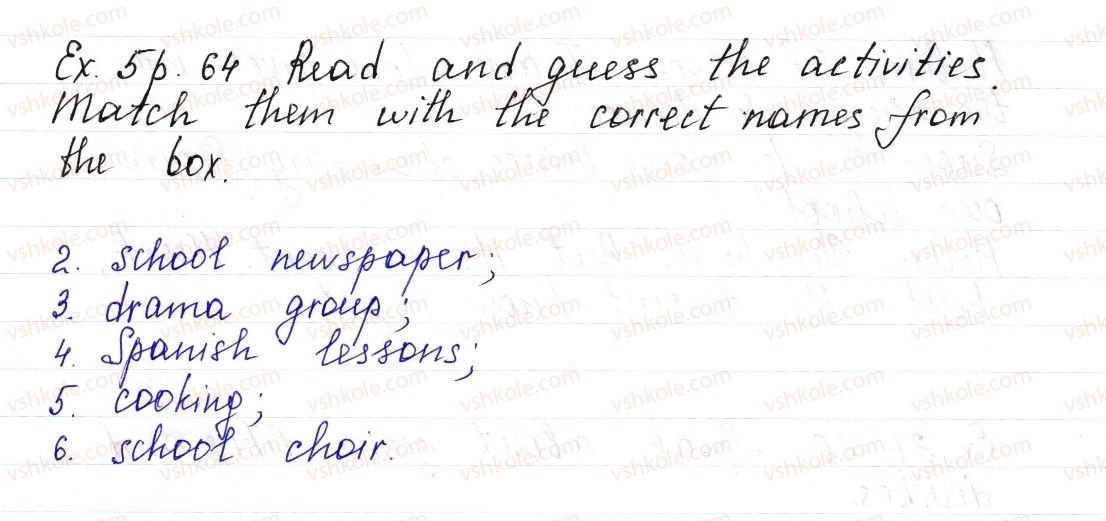 Ex. 5 p. 64 Read and guess the activities.
Match them with the correct names from
the box.
2. school newspaper;
3. drama group;
4. Spanish lessons;
5. cooking;
6. school choir.